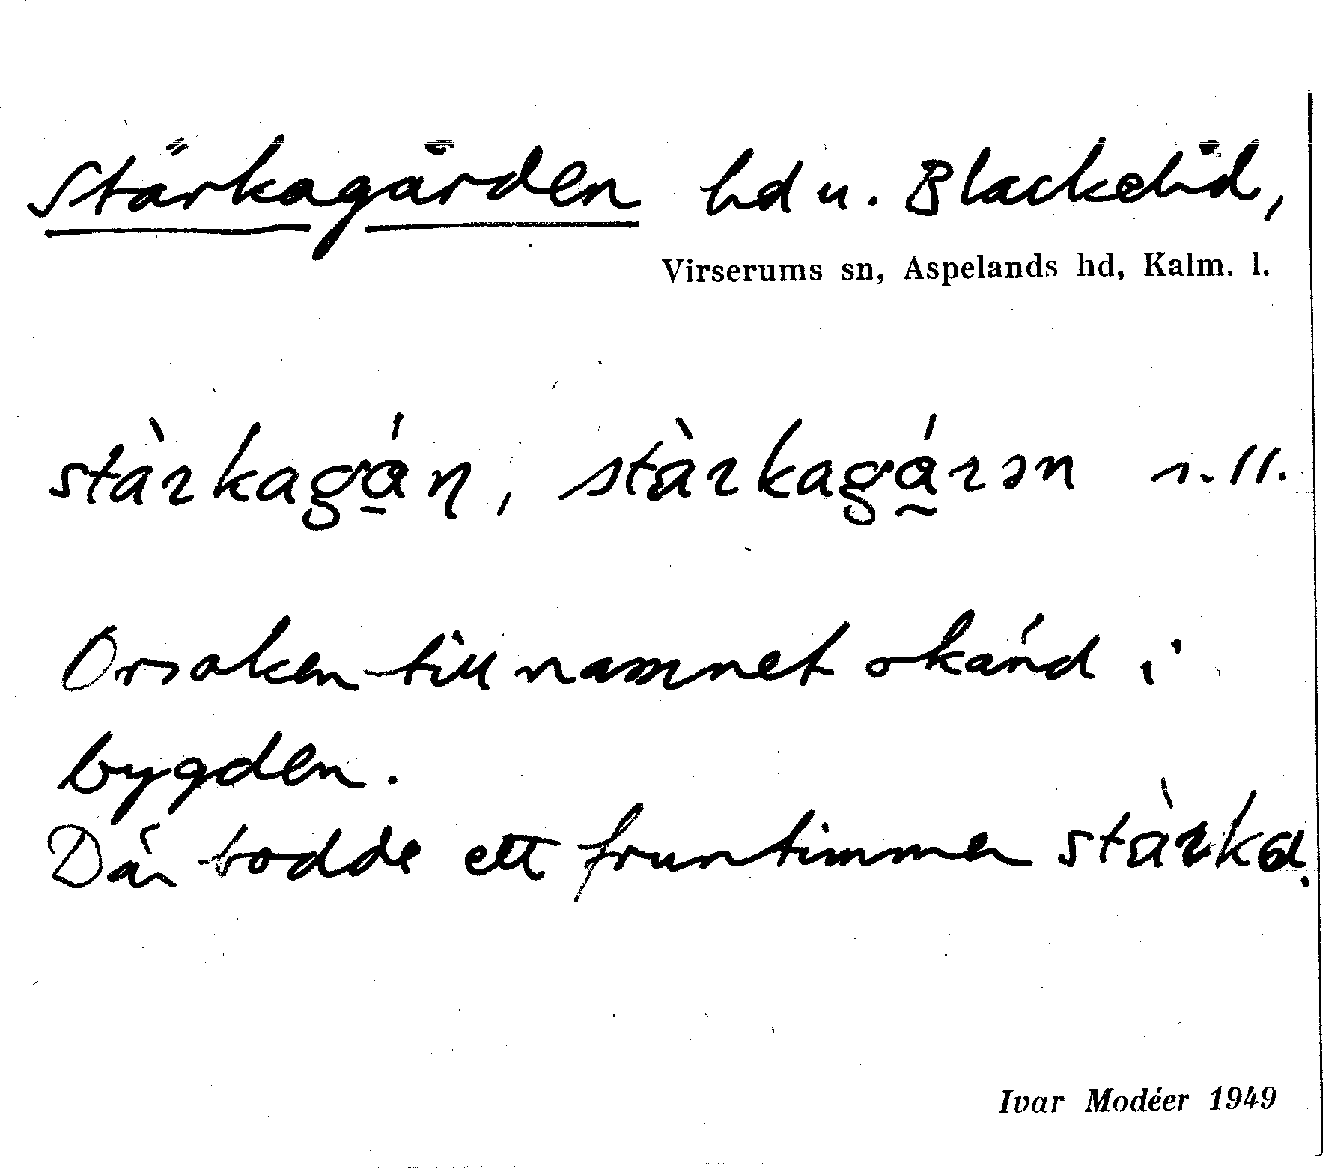 Stärkagården hd u. Blackelid,
Virserums sn, Aspelands hd, Kalm. l.
stàrkagá̱ṇ, stàrkagá̰rən s. ll.
Orsaken till namnet okänd i
bygden.
Där bodde ett fruntimmer stàrka.
Ivar Modéer 1949